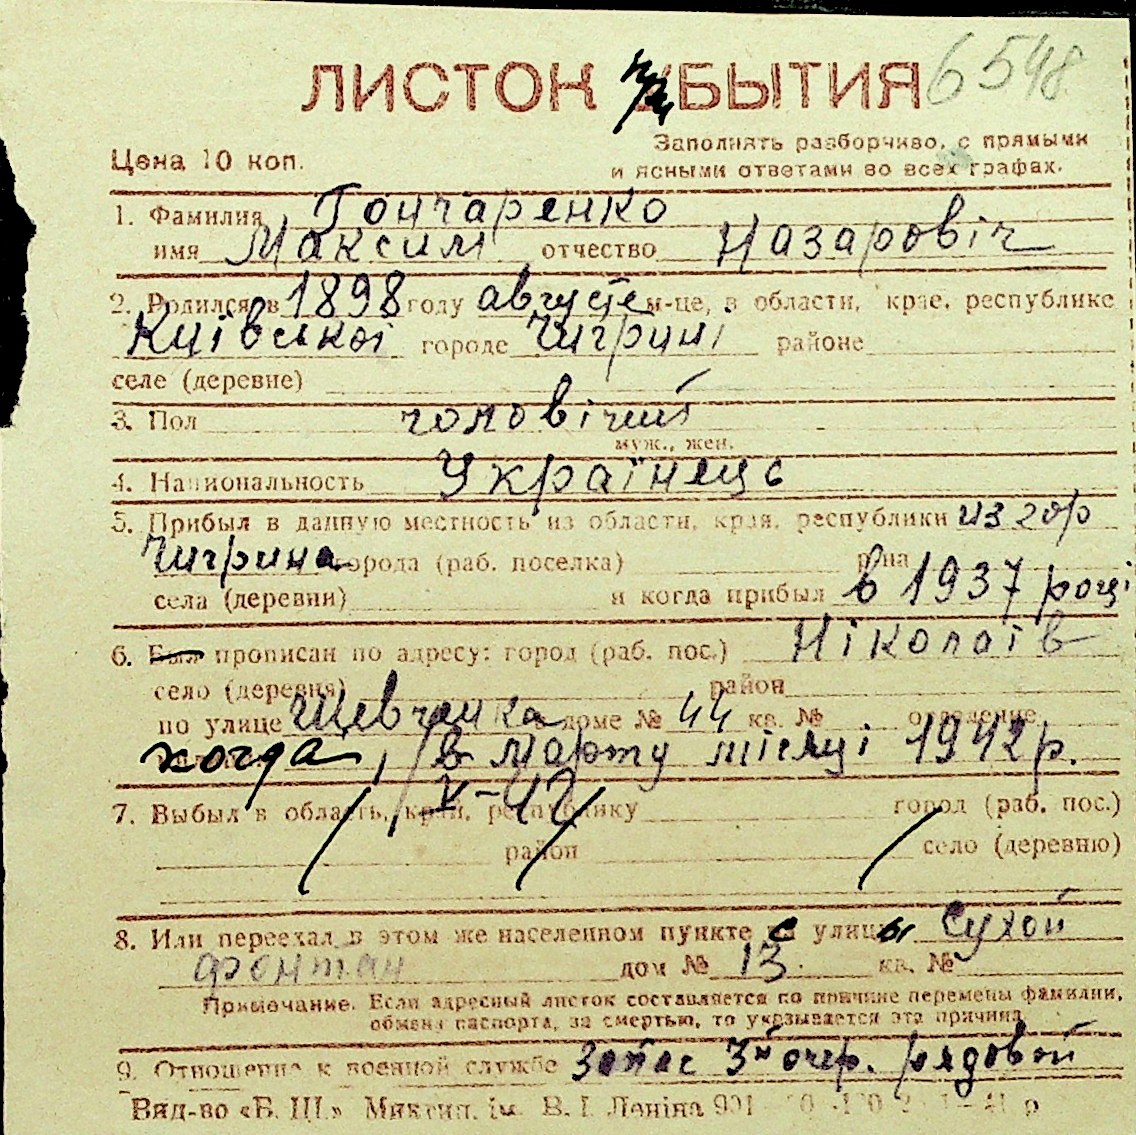 ЛИСТОК при БЫТИЯ 6548
Цена 10 коп.
Заполнять разборчиво, с прямыми
и ясными ответами во всех графах.
1. Фамилия Гончаренко
имя Максим отчество Назаровіч
2. Родился в 1898 году августе м-це, в области, крае, республике
Київської городе Чигрині районе
селе (деревне)
3. Пол чоловічий
муж., жен.
4. Национальность Українець
5. Прибыл в данную местность из области, края, республики из гор
Чигрина города (раб. поселка) р-на
села (деревни) и когда прибыл в 1937 році
6. Был прописан по адресу: город (раб. пос.) Ніколаїв
село (деревня) район
по улице Шевченка доме № 44 кв. № отделение
когда, в марту місяці 1942 р.
V-42
7. Выбыл в область, край, республику город (раб. пос.)
район село (деревню)
8. Или переехал в этом же населенном пункте с улицы Сухой
фонтан дом № 13 кв. №
Примечание. Если адресный листок составляется по причине перемены фамилии,
обмена паспорта, за смертью, то указывается эта причина
9. Отношение к военной службе Запас 3й очер. рядовой
Вид-во «Б. Ш.» Микгип. ім. В. І. Леніна